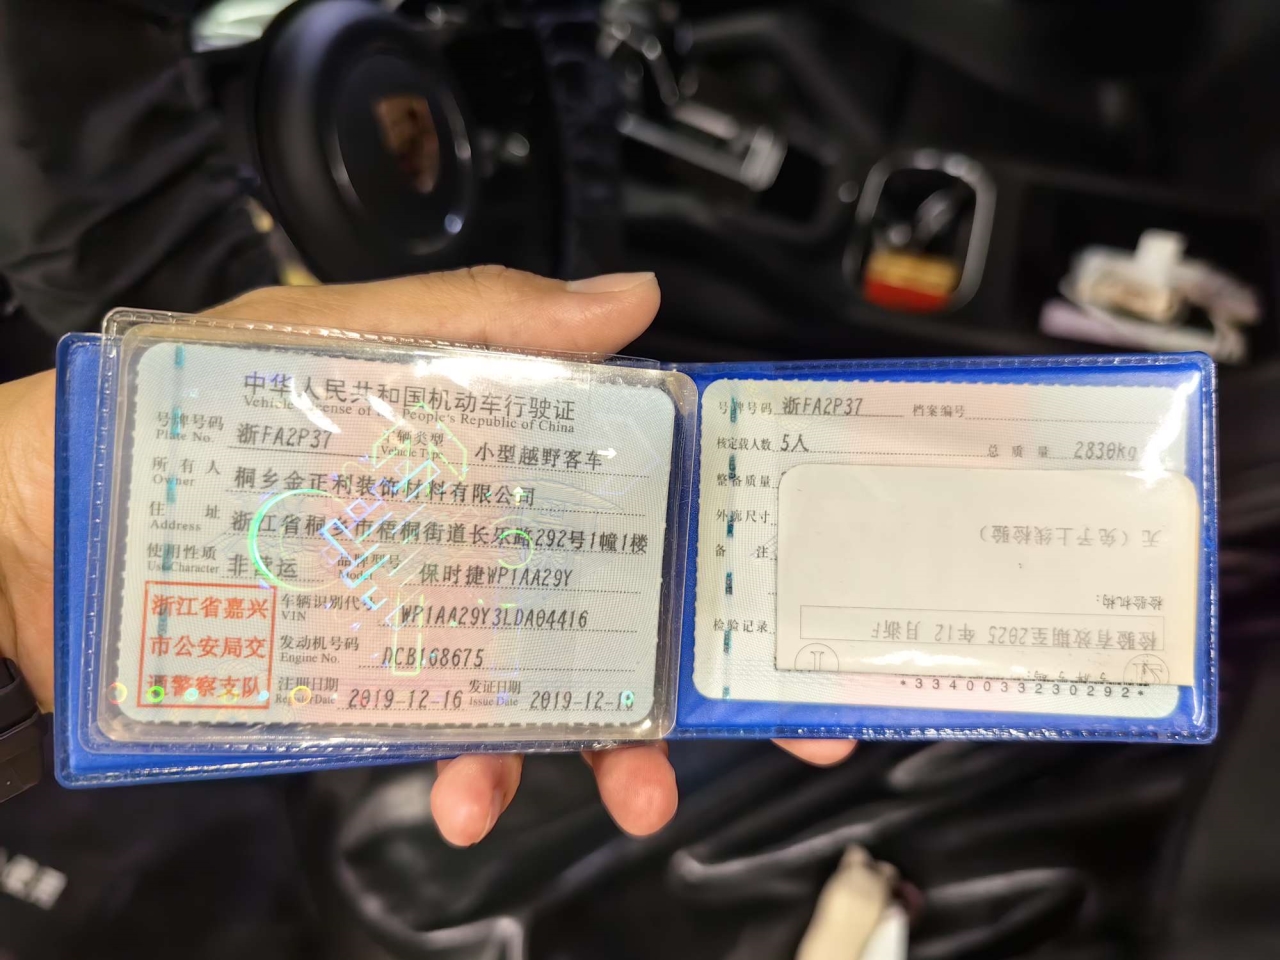 中华人民共和国机动车行驶证
Vehicle License of the People's Republic of China
号牌号码 浙FA2P37 车辆类型 小型越野客车
Plate No. Vehicle Type
所有人 桐乡金正利装饰材料有限公司
Owner
住址 浙江省桐乡市梧桐街道长乐路292号1幢1楼
Address
使用性质 非营运 品牌型号 保时捷WP1AA29Y
Use Character Model
浙江省嘉兴
市公安局交
通警察支队
车辆识别代号 WP1AA29Y3LDA04416
VIN
发动机号码 DCB168675
Engine No.
注册日期 2019-12-16 发证日期 2019-12-16
Register Date Issue Date
号牌号码 浙FA2P37 档案编号
核定载人数 5人 总质量 2830kg
整备质量
外廓尺寸
备注
检验记录
无(免予上线检验)
检验机构:
检验有效期至2025 年12 月浙F
*3340033230292*